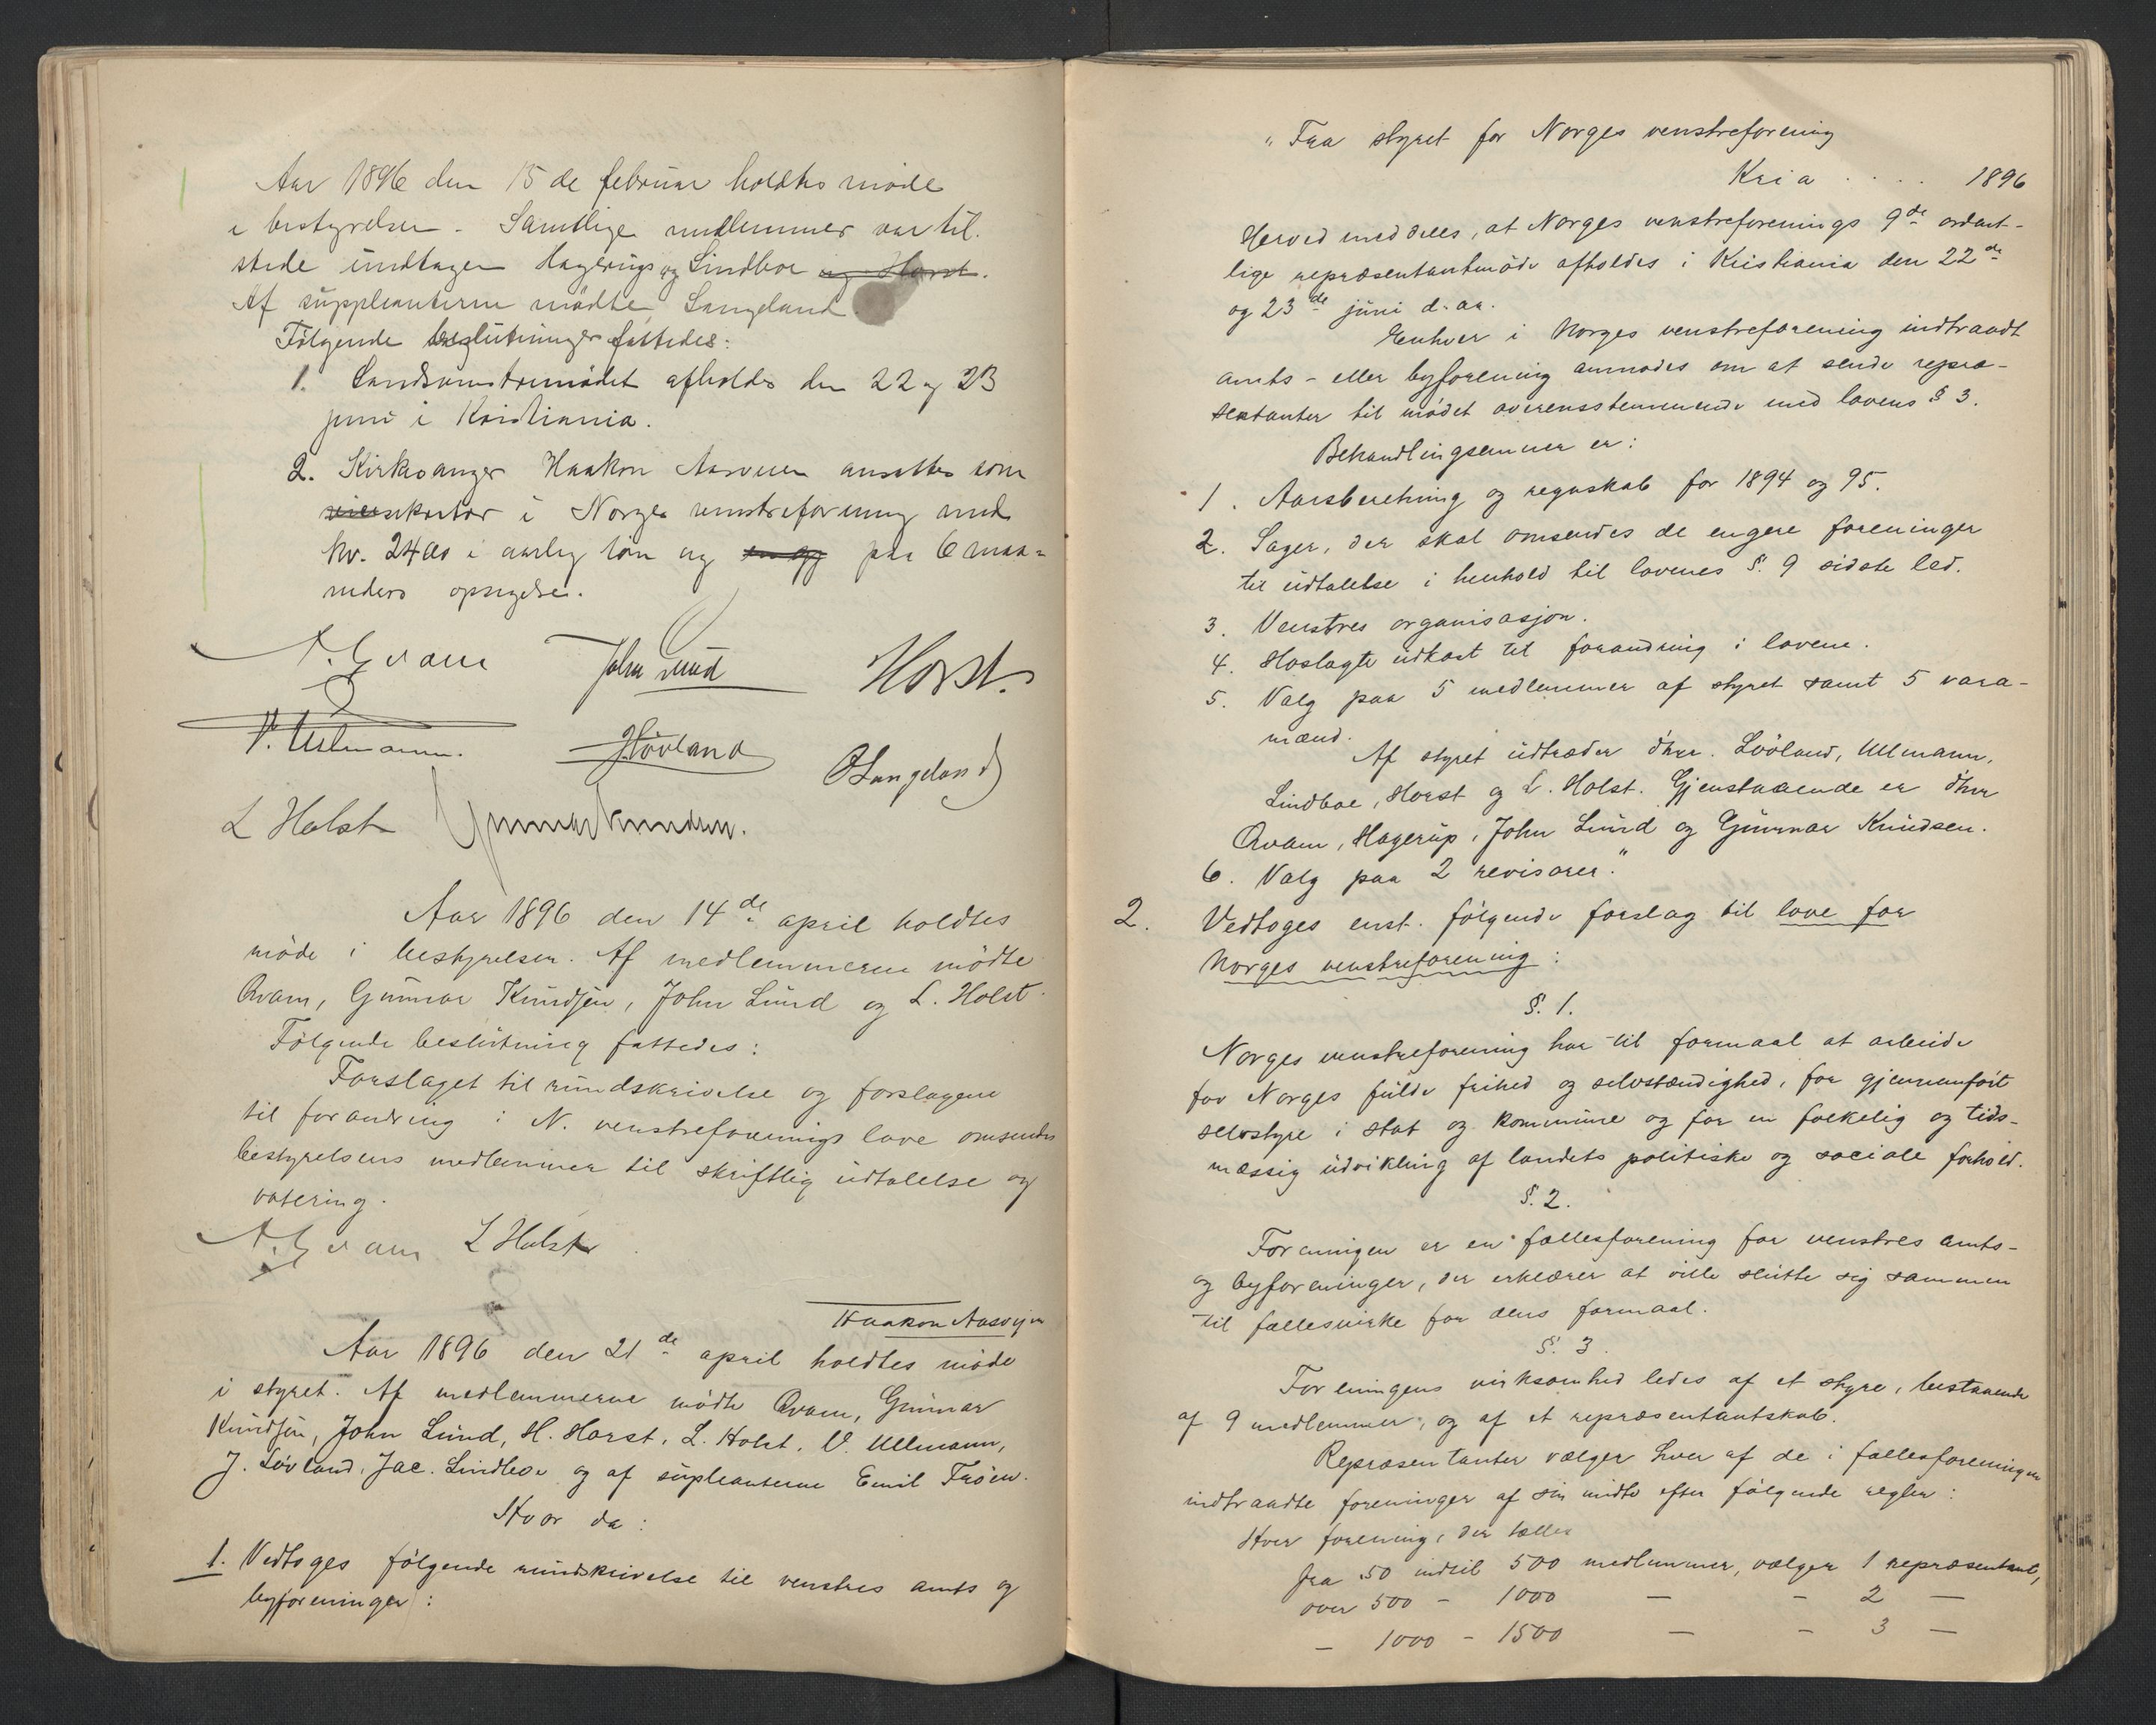 Aar 1896 den 15de februar holdtes møde
i bestyrelsen. Samtlige medlemmer var til-
stede undtagen Hagerup og Lindboe og Horst.
Af suppleanterne mødte Langeland.
Følgende beslutninger fattedes:
1. Landsvenstremødet afholdes den 22 og 23
juni i Kristiania.
2. Kirkesanger Haakon Aasveien ansattes som
vicesekretær i Norges venstreforening med
kr. 2400 i aarlig løn og paa 6 maa-
neders opsigelse.
A. Qvam John Lund Horst.
V. Ullmann. J Løvland O Langeland
L Holst Gunnar Knudsen.
Aar 1896 den 14de april holdtes
møde i bestyrelsen. Af medlemmerne mødte
Qvam, Gunnar Knudsen, John Lund og L. Holst.
Følgende beslutning fattedes:
Forslaget til rundskrivelse og forslagene
til forandring i N. venstreforenings love omsendes
bestyrelsens medlemmer til skriftlig udtalelse og
votering.
A. Qvam L Holst
Haakon Aasveien
Aar 1896 den 21de april holdtes møde
i styret. Af medlemmerne mødte Qvam, Gunnar
Knudsen, John Lund, H. Horst, L. Holst, V. Ullmann,
J. Løvland, Jac. Lindboe og af supleanterne Emil Frøen.
Hvor da:
1. Vedtoges følgende rundskrivelse til venstres amts og
byforeninger:
"Fra styret for Norges venstreforening
Kria .... 1896
Herved meddeles, at Norges venstreforenings 9de ordent-
lige repræsentantmøde afholdes i Kristiania den 22de
og 23de juni d. aa.
Enhver i Norges venstreforening indtraadt
amts- eller byforening anmodes om at sende repræ-
sentanter til mødet overensstemmende med lovens § 3.
Behandlingsemner er:
1. Aarsberetning og regnskab for 1894 og 95.
2. Sager, der skal omsendes de engere foreninger
til udtalelse i henhold til lovenes §. 9 sidste led.
3. Venstres organisasjon.
4. Hoslagte udkast til forandring i lovene.
5. Valg paa 5 medlemmer af styret samt 5 vara-
mænd.
Af styret udtræder d'hrr. Løvland, Ullmann,
Lindboe, Horst og L. Holst. Gjenstaaende er d'hrr
Qvam, Hagerup, John Lund og Gunnar Knudsen.
6. Valg paa 2 revisorer."
2. Vedtoges enst. følgende forslag til love for
Norges venstreforening:
§. 1.
Norges venstreforening har til formaal at arbeide
for Norges fulde frihed og selvstændighed, for gjennemført
selvstyre i stat og kommune og for en folkelig og tids-
mæssig udvikling af landets politiske og sociale forhold.
§. 2.
Foreningen er en fællesforening for venstres amts-
og byforeninger, der erklærer at ville slutte sig sammen
til fællesvirke for dens formaal.
§. 3.
Foreningens virksomhed ledes af et styre, bestaaende
af 9 medlemmer, og af et repræsentantskab.
Repræsentanter vælger hver af de i fællesforeningen
indtraadte foreninger af sin midte efter følgende regler:
Hver forening, der tæller
fra 50 indtil 500 medlemmer, vælger 1 repræsentant,
over 500 - 1000 — - 2 —
— 1000 - 1500 — - 3 —